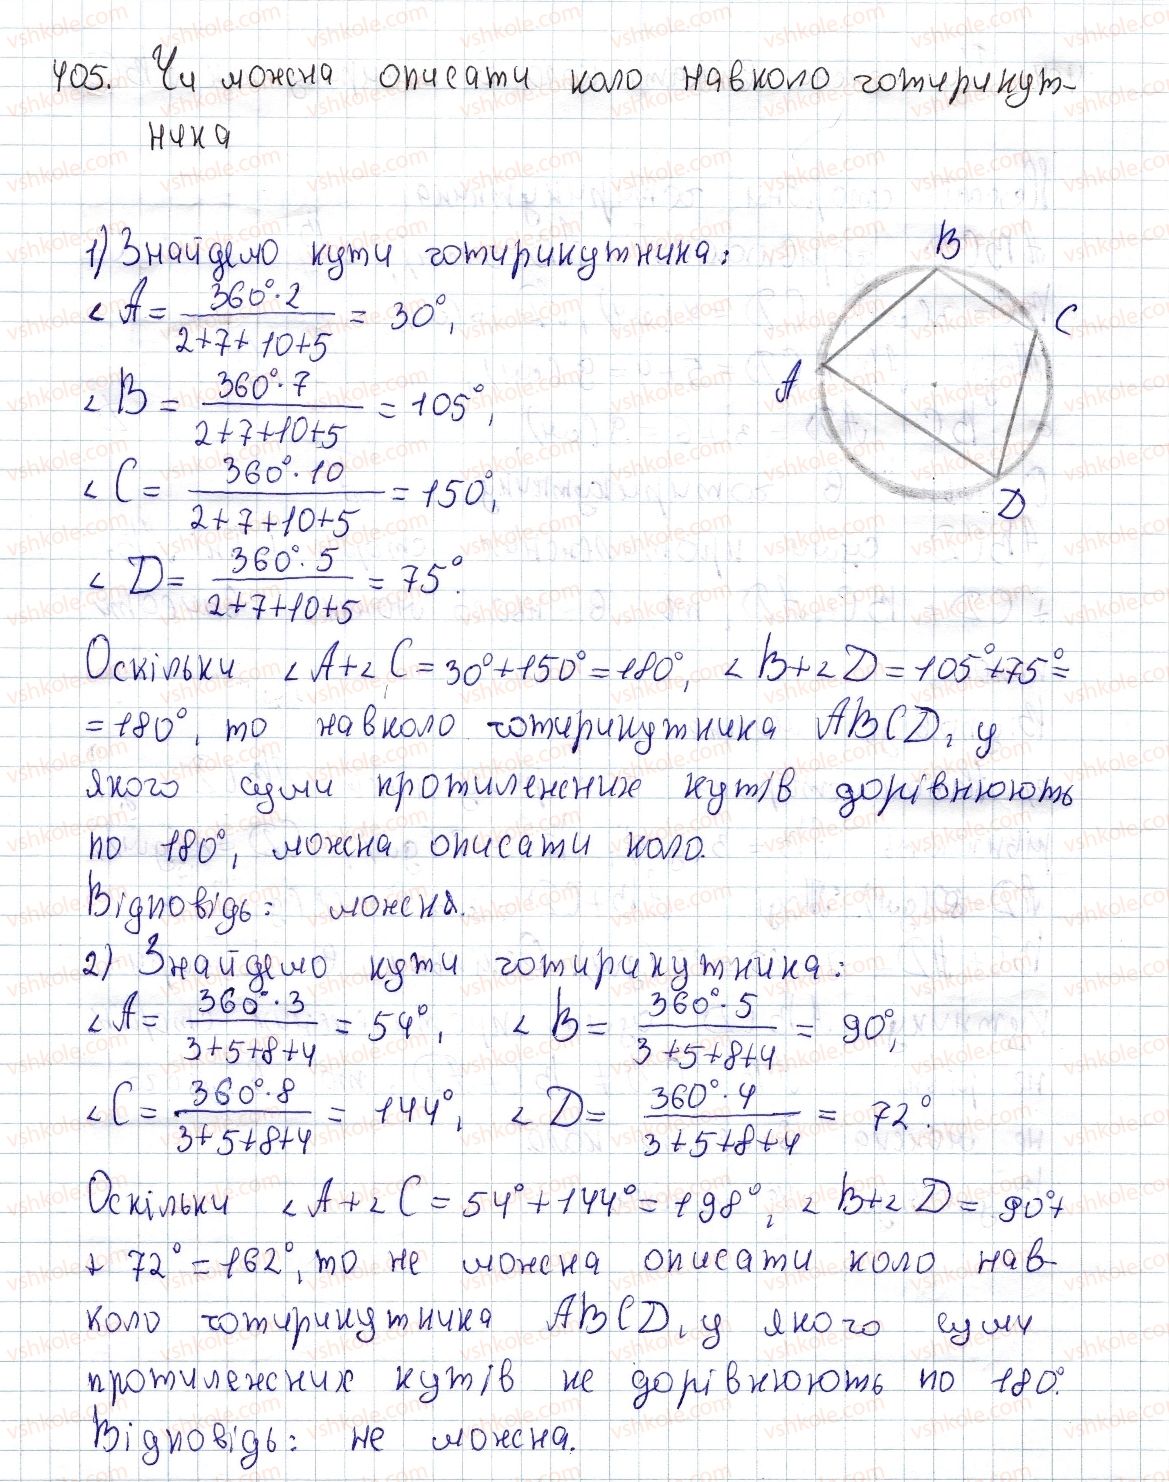 405. Чи можна описати коло навколо чотирикут-
ника
1) Знайдемо кути чотирикутника:
∠A = 360°·2 / 2+7+10+5 = 30°,
∠B = 360°·7 / 2+7+10+5 = 105°,
∠C = 360°·10 / 2+7+10+5 = 150°,
∠D = 360°·5 / 2+7+10+5 = 75°.
B
C
A
D
Оскільки ∠A+∠C=30°+150°=180°, ∠B+∠D=105°+75°=
=180°, то навколо чотирикутника ABCD, у
якого суми протилежних кутів дорівнюють
по 180°, можна описати коло.
Відповідь: можна.
2) Знайдемо кути чотирикутника:
∠A = 360°·3 / 3+5+8+4 = 54°, ∠B = 360°·5 / 3+5+8+4 = 90°,
∠C = 360°·8 / 3+5+8+4 = 144°, ∠D = 360°·4 / 3+5+8+4 = 72°.
Оскільки ∠A+∠C=54°+144°=198°, ∠B+∠D=90°+
+72°=162°, то не можна описати коло нав-
коло чотирикутника ABCD, у якого суми
протилежних кутів не дорівнюють по 180°.
Відповідь: не можна.
vshkole.com